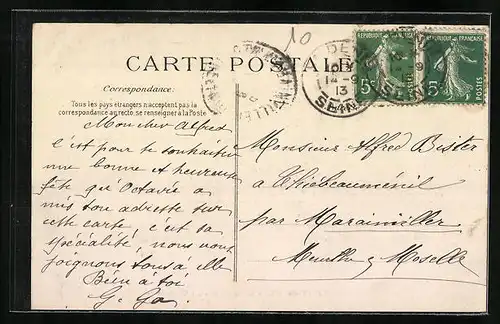 10
CARTE POSTALE
RÉPUBLIQUE FRANÇAISE
RÉPUBLIQUE FRANÇAISE
5c POSTES
5c POSTES
13
SEINE
Correspondance:
Tous les pays étrangers n'acceptent pas la
correspondance au recto, se renseigner à la Poste
Mon cher Alfred
C'est pour te souhaiter
une bonne & heureuse
fête que Octavie a
mis ton adresse sur
cette carte, c'est sa
spécialité, nous nous
joignons tous à elle
Bien à toi
G. Ga
Monsieur Alfred Bister
à Thiébauménil
par Marainviller
Meurthe & Moselle